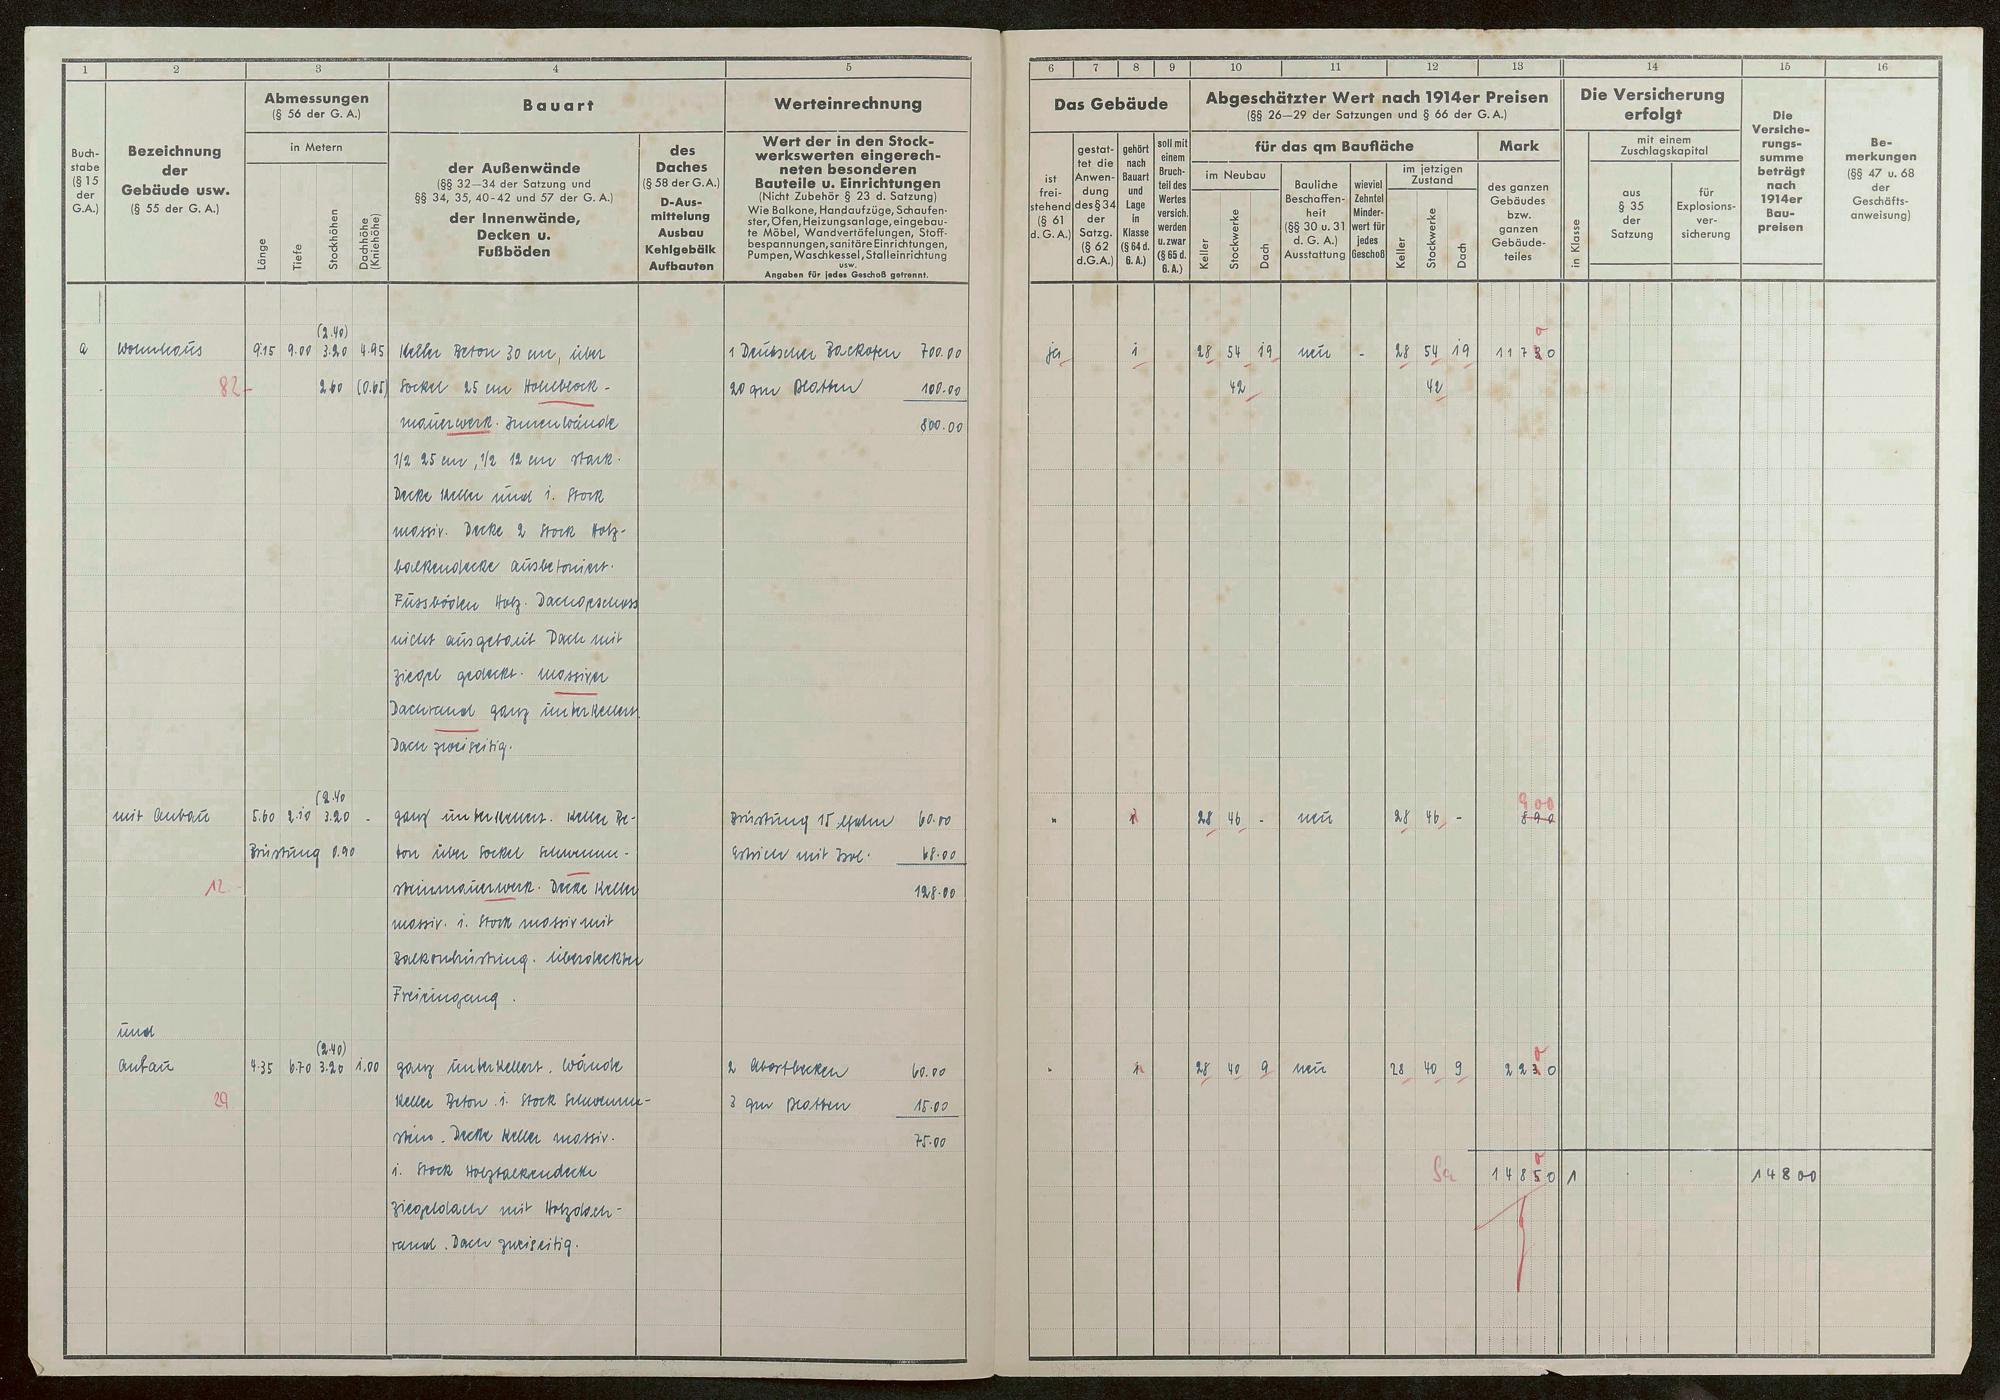 1
2
3
4
5
Buch-
stabe
(§ 15
der
G.A.)
Bezeichnung
der
Gebäude usw.
(§ 55 der G. A.)
Abmessungen
(§ 56 der G. A.)
in Metern
Länge
Tiefe
Stockhöhen
Dachhöhe
(Kniehöhe)
Bauart
der Außenwände
(§§ 32—34 der Satzung und
§§ 34, 35, 40-42 und 57 der G. A.)
der Innenwände,
Decken u.
Fußböden
des
Daches
(§ 58 der G.A.)
D-Aus-
mittelung
Ausbau
Kehlgebälk
Aufbauten
Werteinrechnung
Wert der in den Stock-
werkswerten eingerech-
neten besonderen
Bauteile u. Einrichtungen
(Nicht Zubehör § 23 d. Satzung)
Wie Balkone, Handaufzüge, Schaufen-
ster, Öfen, Heizungsanlage, eingebau-
te Möbel, Wandvertäfelungen, Stoff-
bespannungen, sanitäre Einrichtungen,
Pumpen, Waschkessel, Stalleinrichtung
usw.
Angaben für jedes Geschoß getrennt.
(2.40)
a Wohnhaus 9.15 9.00 3.20 4.95 Keller Beton 30 cm, über 1 Deutscher Backofen 700.00
82 2.60 (0.65) Sockel 25 cm Hohlblock- 20 qm Platten 100.00
mauerwerk. Innenwände 800.00
1/2 25 cm, 1/2 12 cm stark.
Decke Keller und i. Stock
massiv. Decke 2 Stock Holz-
balkendecke ausbetoniert.
Fussböden Holz. Dachgeschoss
nicht ausgebaut Dach mit
Ziegel gedeckt. massiver
Dachrand ganz unterkellert.
Dach zweiseitig.
(2.40
mit Anbau 5.60 2.10 3.20 - ganz unterkellert. Keller Be- Brüstung 15 lfdm 60.00
Brüstung 0.90 ton über Sockel Schwemm- Estrich mit Isol. 68.00
12 steinmauerwerk. Decke Keller 128.00
massiv. i. Stock massiv mit
Balkonbrüstung. überdeckter
Freieingang.
und
(2.40)
Anbau 4.35 6.70 3.20 1.00 ganz unterkellert. Wände 2 Abortbecken 60.00
29 Keller Beton. i. Stock Schwemm- 3 qm Platten 15.00
stein. Decke Keller massiv. 75.00
i. Stock Holzbalkendecke
Ziegeldach mit Holzdach-
rand. Dach zweiseitig.
6
7
8
9
10
11
12
13
14
15
16
Das Gebäude
ist
frei-
stehend
(§ 61
d. G. A.)
gestat-
tet die
Anwen-
dung
des § 34
der
Satzg.
(§ 62
d.G.A.)
gehört
nach
Bauart
und
Lage
in
Klasse
(§ 64 d.
G. A.)
soll mit
einem
Bruch-
teil des
Wertes
versich.
werden
u. zwar
(§ 65 d.
G. A.)
Abgeschätzter Wert nach 1914er Preisen
(§§ 26—29 der Satzungen und § 66 der G. A.)
für das qm Baufläche
im Neubau
Keller
Stockwerke
Dach
Bauliche
Beschaffen-
heit
(§§ 30 u. 31
d. G. A.)
Ausstattung
wieviel
Zehntel
Minder-
wert für
jedes
Geschoß
im jetzigen
Zustand
Keller
Stockwerke
Dach
Mark
des ganzen
Gebäudes
bzw.
ganzen
Gebäude-
teiles
Die Versicherung
erfolgt
in Klasse
mit einem
Zuschlagskapital
aus
§ 35
der
Satzung
für
Explosions-
ver-
sicherung
Die
Versiche-
rungs-
summe
beträgt
nach
1914er
Bau-
preisen
Be-
merkungen
(§§ 47 u. 68
der
Geschäfts-
anweisung)
0
ja i 28 54 19 neu - 28 54 19 11730
42 42
900
" 1 28 46 - neu 28 46 - 890
0
" 1 28 40 9 neu 28 40 9 2230
0
Sa 14850 1 14800